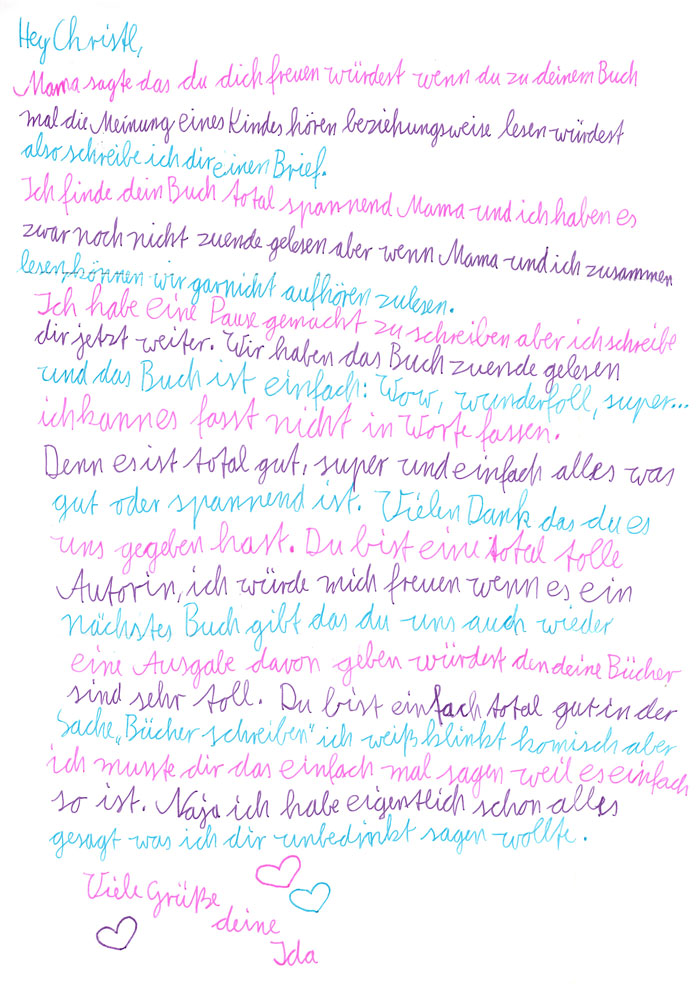 Hey Christl,
Mama sagte das du dich freuen würdest wenn du zu deinem Buch
mal die Meinung eines Kindes hören beziehungsweise lesen würdest
also schreibe ich dir einen Brief.
Ich finde dein Buch total spannend Mama und ich haben es
zwar noch nicht zuende gelesen aber wenn Mama und ich zusammen
lesen können wir garnicht aufhören zulesen.
Ich habe eine Pause gemacht zu schreiben aber ich schreibe
dir jetzt weiter. Wir haben das Buch zuende gelesen
und das Buch ist einfach: Wow, wunderfoll, super...
ich kann es fasst nicht in Worte fassen.
Denn es ist total gut, super und einfach alles was
gut oder spannend ist. Vielen Dank das du es
uns gegeben hast. Du bist eine total tolle
Autorin, ich würde mich freuen wenn es ein
nächstes Buch gibt das du uns auch wieder
eine Ausgabe davon geben würdest den deine Bücher
sind sehr toll. Du bist einfach total gut in der
Sache „Bücher schreiben" ich weiß klinkt komisch aber
ich musste dir das einfach mal sagen weil es einfach
so ist. Naja ich habe eigentlich schon alles
gesagt was ich dir unbedinkt sagen wollte.
Viele Grüße
deine
Ida